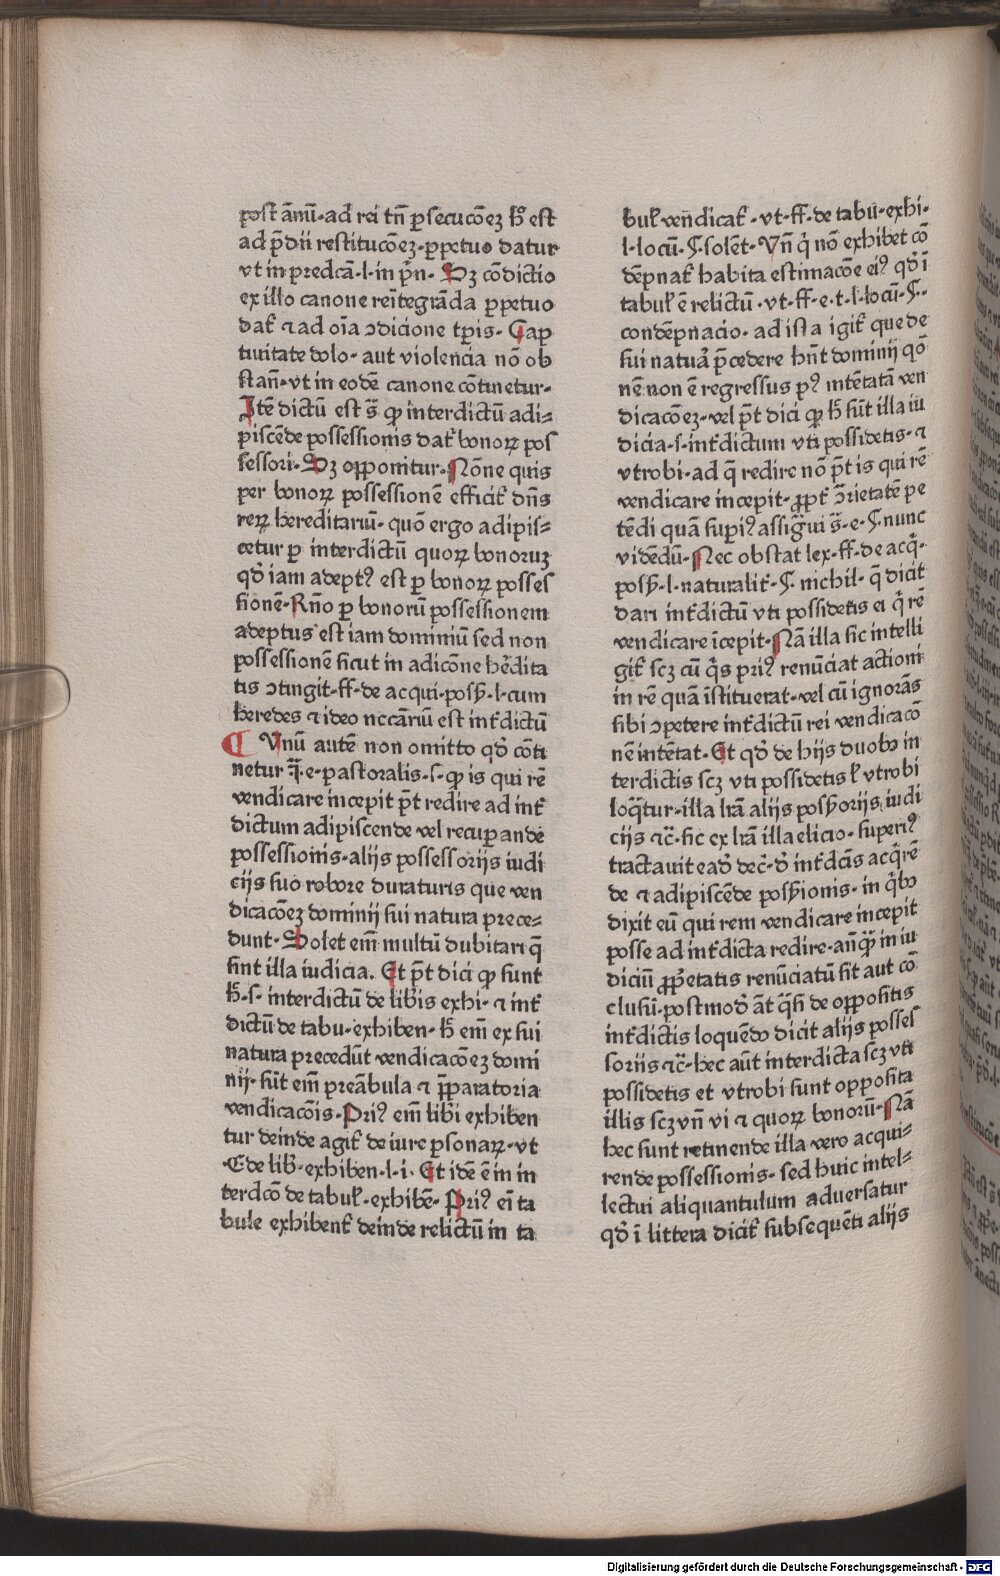 post ānū·ad rei tñ ꝑsecucōeꝫ hͦ est
ad p̄dñ restitucōeꝫ·ꝑpetuo datur
vt in predcā·l·in pñ· Sꝫ cōdictio
ex illo canone reītegrāda ꝑpetuo
dat᷑ ⁊ ad oīa ꝯdicione tꝑis· Cap
tiuitate dolo· aut violencia nō ob
stañ·vt in eodē canone cōtinetur·
Itē dictū est s̄ ꝙ interdictū adi⸗
piscēde possessionis dat᷑ bonoꝝ pos
sessori· Sꝫ oꝑponitur· Nōne quis
per bonoꝝ possessionē efficit᷑ dñs
reꝝ hereditariū· quō ergo adipis⸗
cetur ꝑ interdictū quoꝝ bonoruꝫ
qd̓ iam adeptꝰ est ꝑ bonoꝝ posses
sionē·Rño ꝑ bonorū possessionem
adeptus est iam dominiū sed non
possessionē sicut in adicōne hēdita
tis ꝯtingit·ff·de acqui·posß·l·cum
heredes ⁊ ideo nccāriū est int᷑dictū
¶ Vnū autē non omitto qd̓ cōti
netur q̄·e·pastoralis·s·ꝙ is qui rē
vendicare incepit p̄t redire ad int᷑
dictum adipiscende vel recuꝑande
possessionis·alijs possessorijs iudi
cijs suo robore duraturis que ven
dicacōeꝫ dominij sui natura prece⸗
dunt· Solet em̄ multū dubitari q̄
sint illa iudicia. Et p̄t dici ꝙ sunt
hͦ·s· interdictū de lib̓is exhi· ⁊ int᷑
dictū de tabu·exhiben· hͦ em̄ ex sui
natura precedūt vendicacōeꝫ domi
nij· sūt em̄ preābula ⁊ p̄ꝑaratoria
vendicacōis· Priꝰ em̄ lib̓i exhiben
tur deinde agit᷑ de iure ꝑsonaꝝ·vt
·C·de lib̓·exhiben·l·i· Et idē ē in in
terdcō de tabul̓·exhibē· Priꝰ ei̅ ta
bule exhibent᷑ deinde relictū in ta
bul̓ vēndicat᷑ ·vt·ff·de tabu·exhi·
l·locū·§·solēt· Vñ q̓ nō exhibet cō
dēpnat᷑ habita estimacōe eiꝰ qd̓ ī
tabul̓ ē relictū ·vt·ff·e·t·l·locū·§·
condēpnacio· ad ista igit᷑ que de
sui natuā p̄cedere hñt dominij qō
nē non ē regressus pꝰ intētatā ven
dicacōeꝫ·vel p̄t dici ꝙ hͦ sūt illa iu
dicia·s·int᷑dictum vti possidetis· ⁊
vtrobi·ad q̄ redire nō p̄t is qui rē
vendicare incepit· ꝓpt᷑ ꝯ̄rietatē pe
tēdi quā supiꝰ assig̓ui s̄·e·§·nunc
vidēdū· Nec obstat lex·ff·de acq̓·
posß·l·naturalit᷑·§· nichil· q̄ dicit
dari int᷑dictū vti possidetis ei q̓ rē
vendicare īcepit· Nā illa sic intelli
git᷑ scꝫ cū q̓s priꝰ renūciat actioni
in rē quā īstituerat·vel cū ignorās
sibi ꝯpetere int᷑dictū rei vendicacō
nē intētat· Et qd̓ de hijs duobꝰ in
terdictis scꝫ vti possidetis ł vtrobi
loq̄tur·illa l̓rā alijs posß̓orijs iudi
cijs ⁊c̄·sic ex l̓rā illa elicio· superiꝰ
tractauit eadē dec̄·d̓ int᷑dcīs acq̓rē
de ⁊ adipiscēde posß̓ionis· in q̓bꝰ
dixit eū qui rem vendicare incepit
posse ad int᷑dicta redire·añꝗ̄ in iu
diciū ꝓp̓etatis renūciatū sit aut cō
clusū·postmod̓ āt q̄si de opp̄ositis
int᷑dictis loquēdo dicit alijs posses
soriis ⁊c̄·hec aūt interdicta scꝫ vti
possidetis et vtrobi sunt opposita
illis scꝫ vñ vi ⁊ quoꝝ bonorū· Nā
hec sunt retinende illa vero acqui⸗
rende possessionis· sed huic intel⸗
lectui aliquantulum aduersatur
qd̓ ī littera dicit᷑ subsequēti alijs
Digitalisierung gefördert durch die Deutsche Forschungsgemeinschaft - DFG